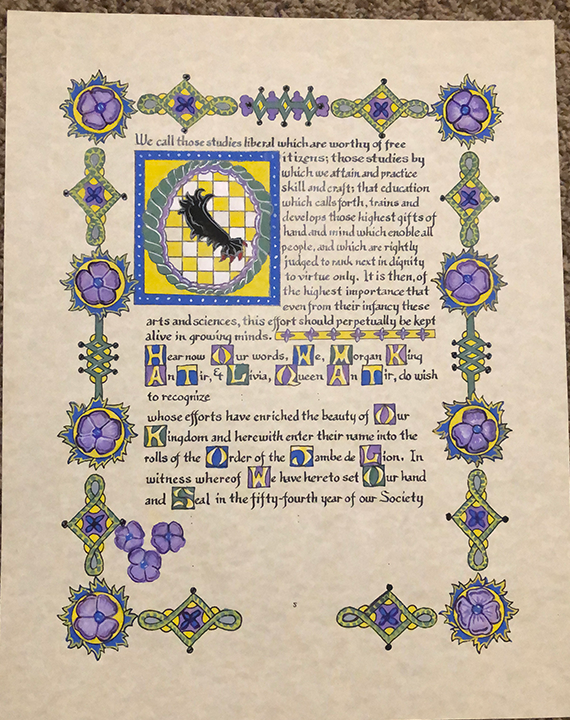 We call those studies liberal which are worthy of free
itizens; those studies by
which we attain and practice
skill and craft; that education
which calls forth, trains and
develops those highest gifts of
hand and mind which enoble all
people, and which are rightly
judged to rank next in dignity
to virtue only. It is then, of
the highest importance that
even from their infancy these
arts and sciences, this effort should perpetually be kept
alive in growing minds.
Hear now Our words, We, Morgan King
An Tir, & Livia, Queen An Tir, do wish
to recognize
whose efforts have enriched the beauty of Our
Kingdom and herewith enter their name into the
rolls of the Order of the Jambe de Lion. In
witness whereof We have hereto set Our hand
and Seal in the fifty-fourth year of our Society